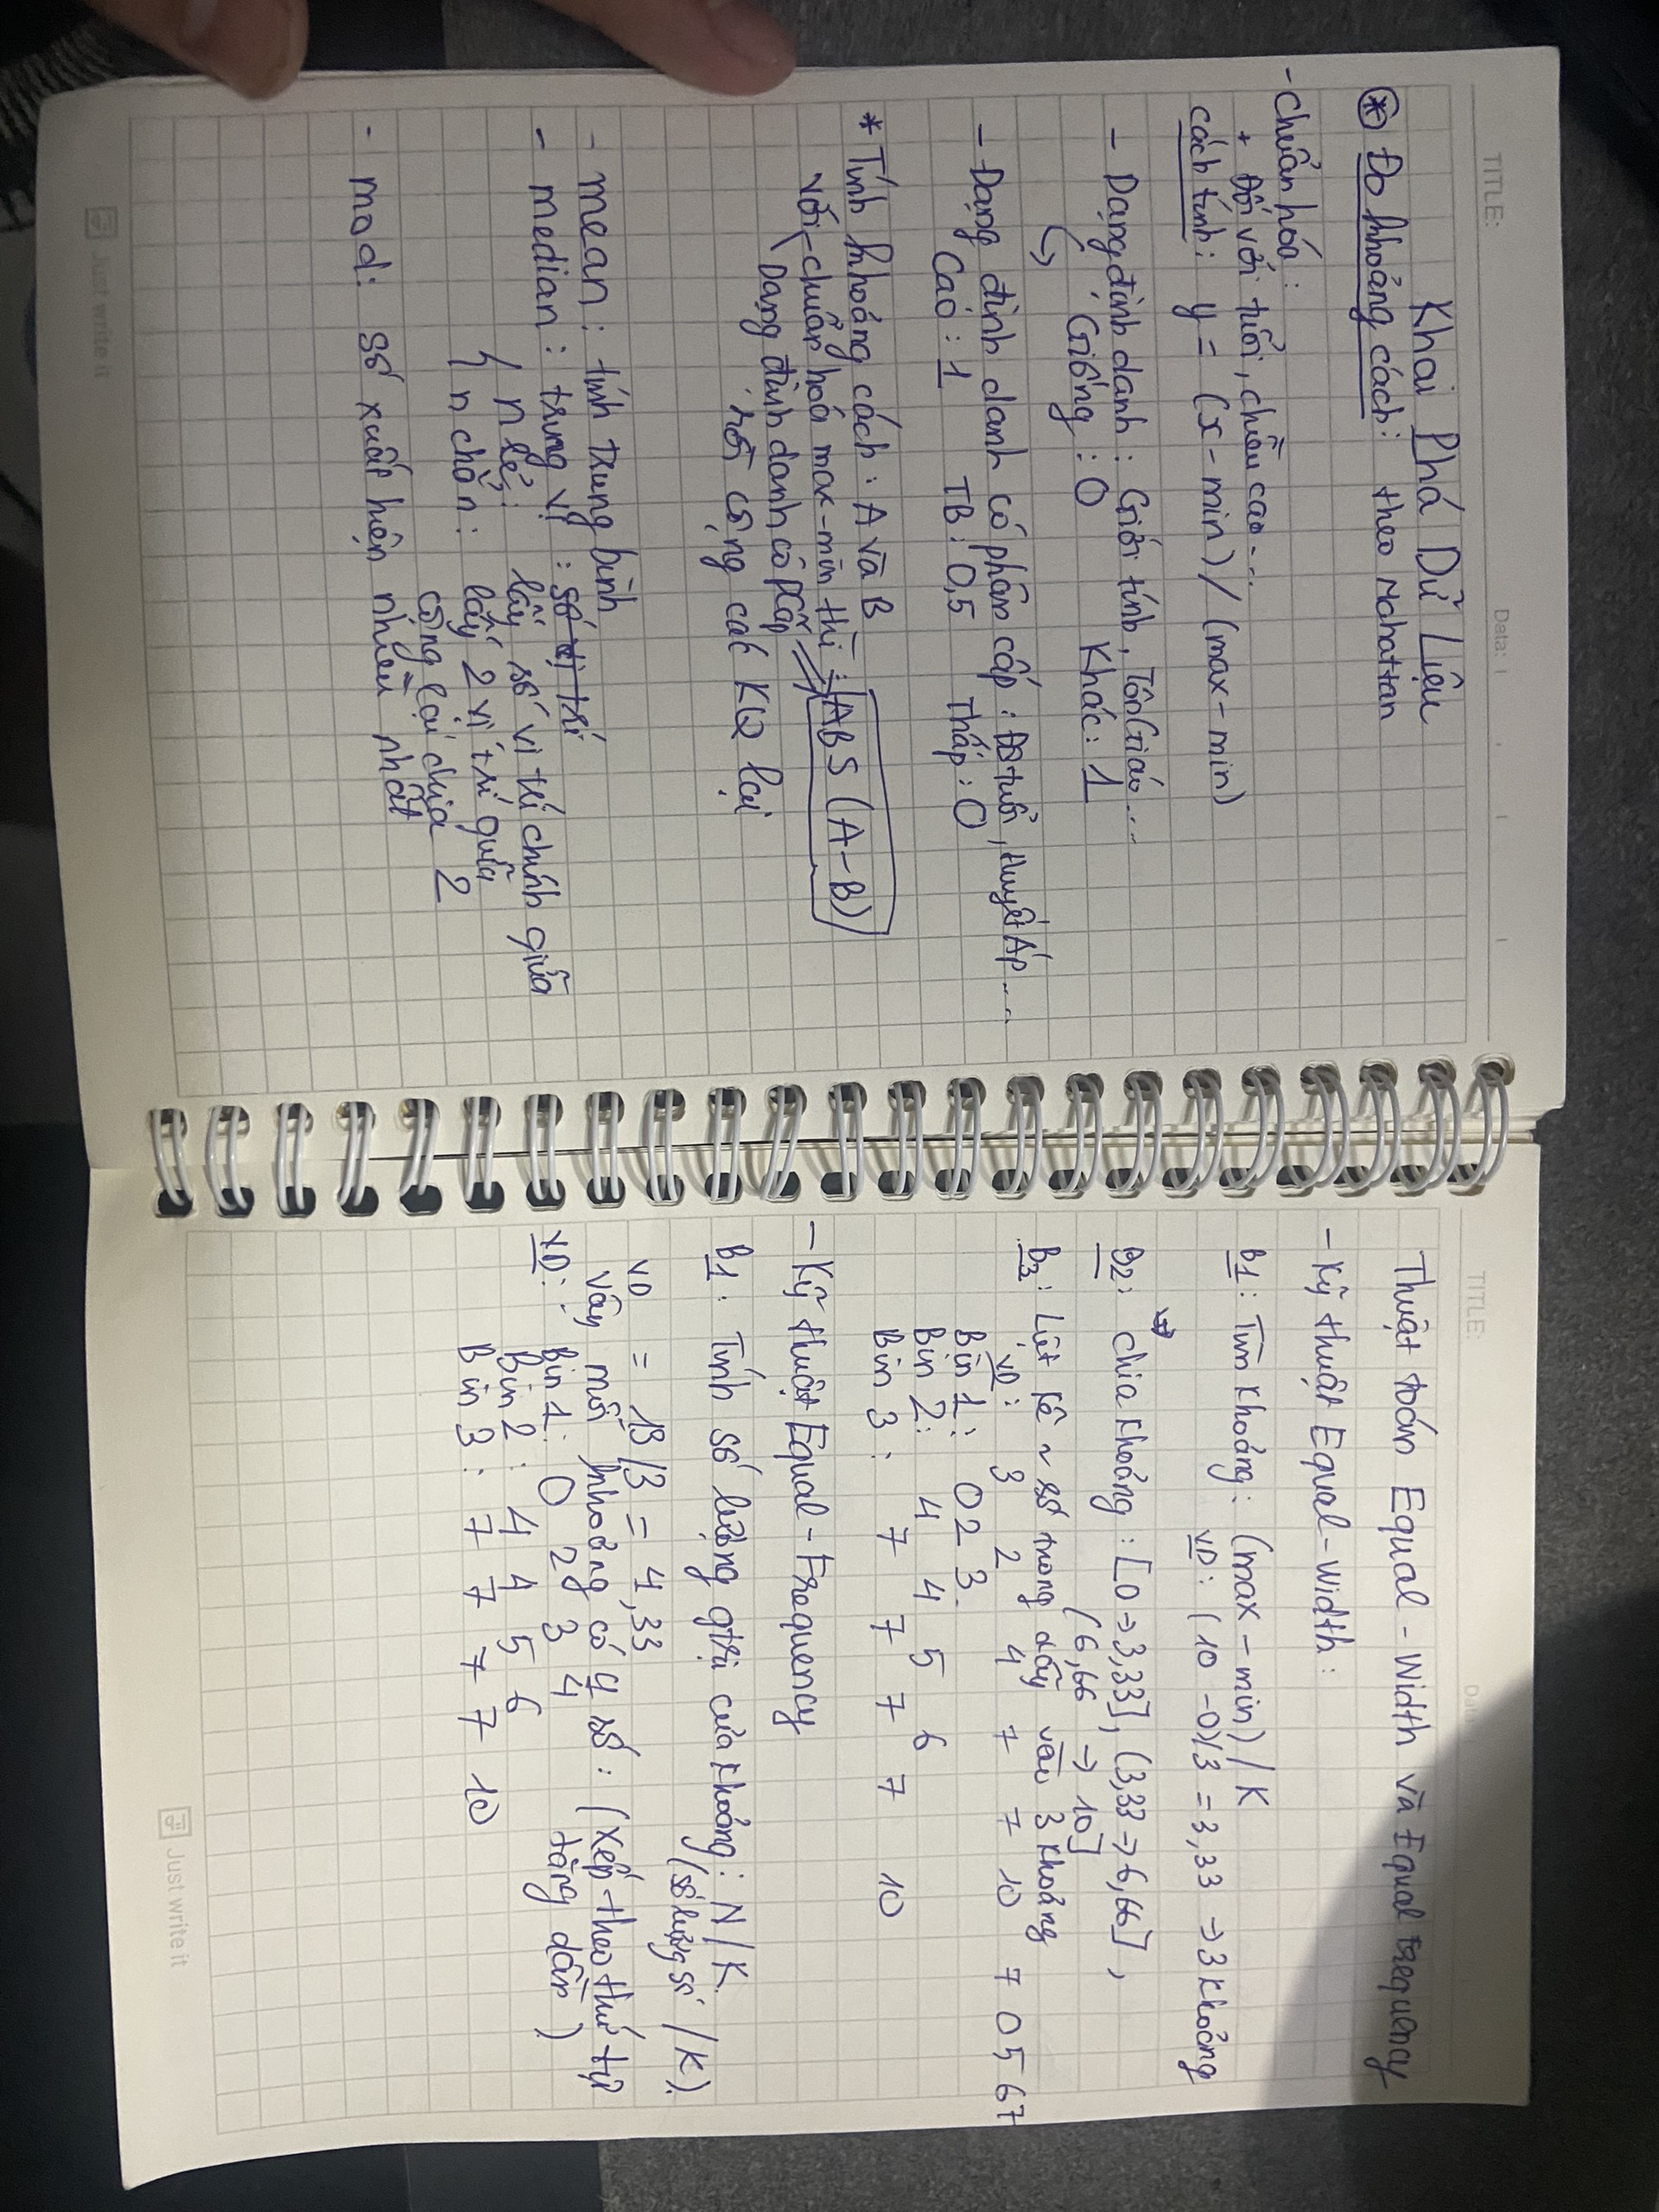 TITLE:
Data:
Khai Phá Dữ Liệu
* Đo khoảng cách: theo Mahattan
- Chuẩn hóa:
+ Đối với tuổi, chiều cao...
cách tính: y = (x - min) / (max - min)
- Dạng định danh: Giới tính, Tôn Giáo...
Giống: 0 Khác: 1
- Dạng định danh có phân cấp: Độ tuổi, Huyết Áp...
Cao: 1 TB: 0,5 Thấp: 0
* Tính khoảng cách: A và B
với - chuẩn hoá max-min thì: ABS (A-B)
Dạng định danh có pCấp
rồi cộng các KQ lại
- mean: tính trung bình
- median: trung vị: số vị trí
n lẻ: lấy số vị trí chính giữa
n chẵn: lấy 2 vị trí giữa
cộng lại chia 2
- mod: số xuất hiện nhiều nhất
Just write it
TITLE:
Data
Thuật toán Equal - Width và Equal Frequency
- Kỹ thuật Equal - Width:
B1: Tìm khoảng: (max - min) / K
VD: (10 - 0)/3 = 3,33 → 3 khoảng
B2: chia khoảng: [0 → 3,33], (3,33 → 6,66],
(6,66 → 10]
B3: Liệt kê ~ số trong dãy vào 3 khoảng
VD: 3 2 4 7 7 10 7 0 5 6 7
Bin 1: 0 2 3.
Bin 2: 4 4 5 6
Bin 3: 7 7 7 7 10
- Kỹ thuật Equal - Frequency
B1. Tính số lượng gtrị của khoảng: N / K.
(số lượng số / K).
VD = 13/3 = 4,33
Vậy mỗi khoảng có 4 số: (xếp theo thứ tự
tăng dần)
VD: Bin 1: 0 2 3 4
Bin 2: 4 4 5 6
Bin 3: 7 7 7 7 10
Just write it